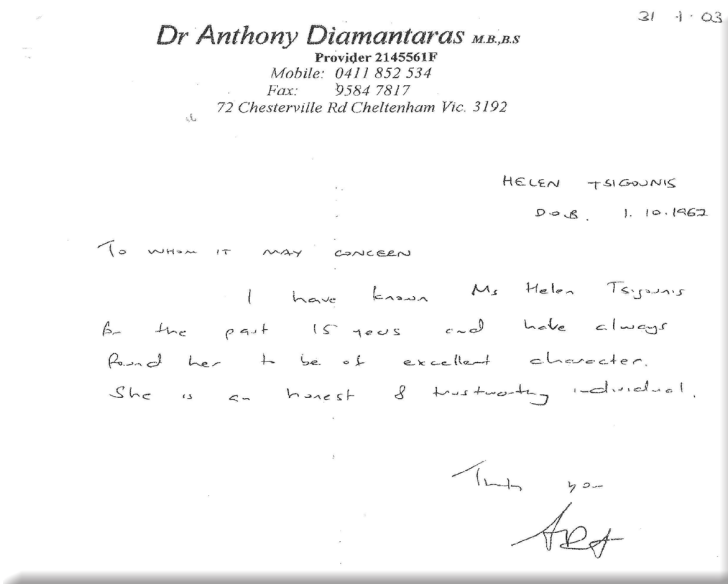 31 · 1 · 03
Dr Anthony Diamantaras M.B.,B.S
Provider 2145561F
Mobile: 0411 852 534
Fax: 9584 7817
72 Chesterville Rd Cheltenham Vic. 3192
HELEN TSIGOUNIS
D.O.B. 1.10.1962
TO WHOM IT MAY CONCERN
I have known Ms Helen Tsigounis
for the past 15 years and have always
found her to be of excellent character.
She is an honest & trustworthy individual.
Thank you